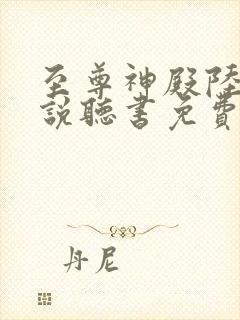 至尊神殿陸
說聽書免費
丹尼